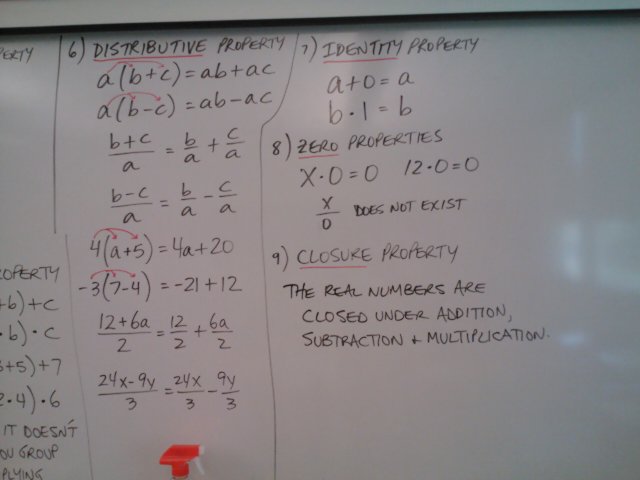 PERTY
OPERTY
+b)+c
·b)·c
+5)+7
2·4)·6
IT DOESN'T
OU GROUP
PLYING
6) DISTRIBUTIVE PROPERTY
a(b+c)=ab+ac
a(b-c)=ab-ac
b+c/a = b/a + c/a
b-c/a = b/a - c/a
4(a+5)=4a+20
-3(7-4)=-21+12
12+6a/2 = 12/2 + 6a/2
24x-9y/3 = 24x/3 - 9y/3
7) IDENTITY PROPERTY
a+0=a
b·1=b
8) ZERO PROPERTIES
X·0=0 12·0=0
X/0 DOES NOT EXIST
9) CLOSURE PROPERTY
THE REAL NUMBERS ARE
CLOSED UNDER ADDITION,
SUBTRACTION + MULTIPLICATION.